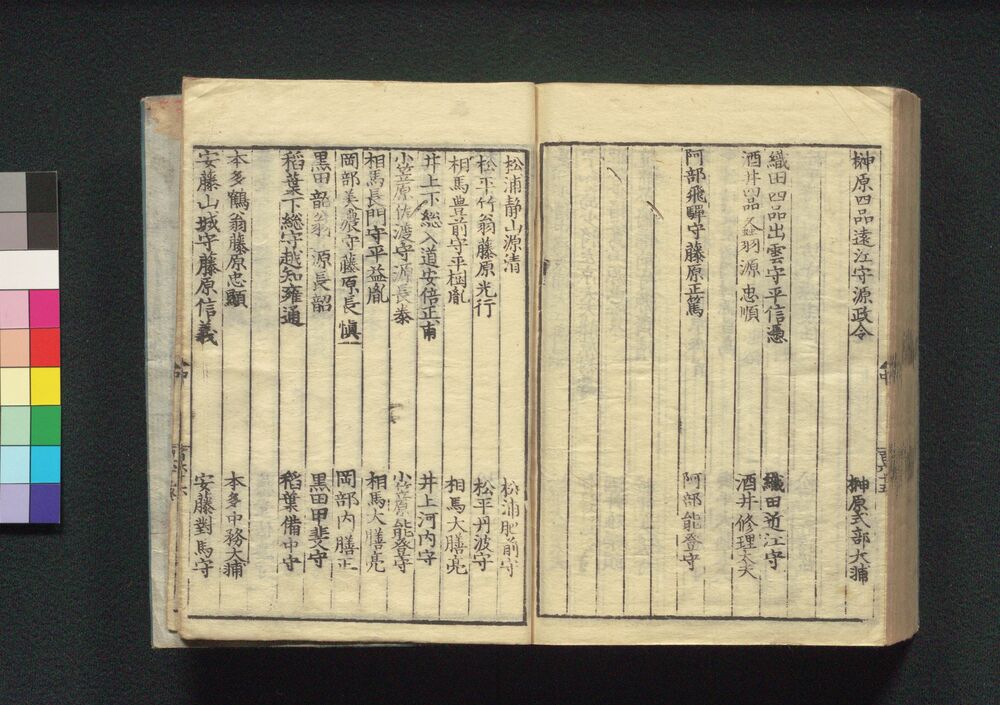 榊原四品遠江守源政令 榊原式部大輔
織田四品出雲守平信憑 織田近江守
酒井四品 源忠順 酒井修理大夫
阿部飛驒守藤原正篤 阿部能登守
松浦静山源清 松浦肥前守
松平竹翁藤原光行 松平丹波守
相馬豊前守平樹胤 相馬大膳亮
井上下総入道安倍正甫 井上河内守
小笠原佐渡守源長泰 小笠原能登守
相馬長門守平益胤 相馬大膳亮
岡部美濃守藤原長愼 岡部内膳正
黒田韶翁源長韶 黒田甲斐守
稻葉下総守越知雍通 稻葉備中守
本多鶴翁藤原忠顯 本多中務大輔
安藤山城守藤原信義 安藤對馬守